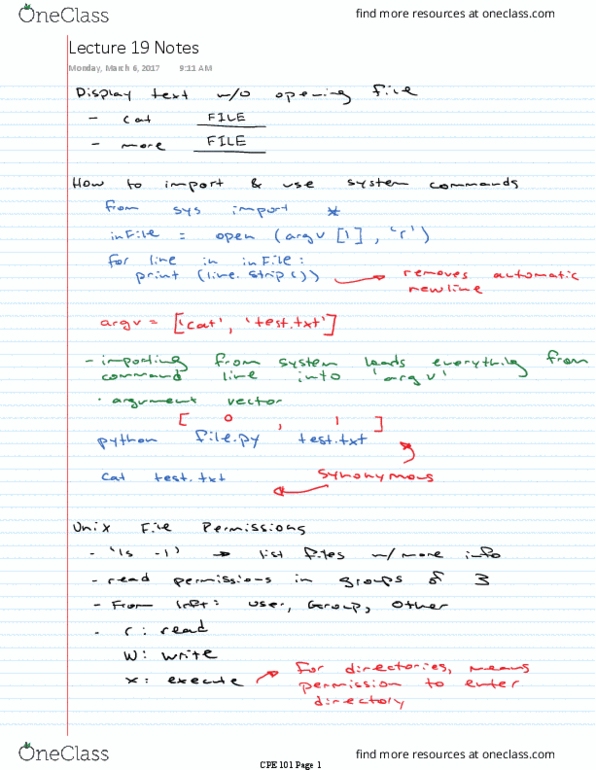 OneClass
find more resources at oneclass.com
Lecture 19 Notes
Monday, March 6, 2017 9:11 AM
Display text w/o opening file
- cat FILE
- more FILE
How to import & use system commands
from sys import *
inFile = open (argv [1], 'r')
for line in inFile:
print (line.strip()) → removes automatic
newline
argv = ['cat', 'test.txt']
- importing from system loads everything from
command line into 'argv'
· argument vector
[ 0 , 1 ]
python file.py test.txt
cat test.txt synonymous
Unix File Permissions
- 'ls -l' → list files w/more info
- read permissions in groups of 3
- From left: User, Group, Other
- r: read
w: write
x: execute → for directories, means
permission to enter
directoly
OneClass
find more resources at oneclass.com
CPE 101 Page 1